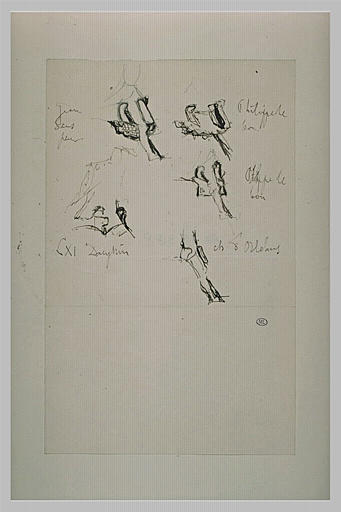 Jean
Sans
peur
Philippe le
bon
Philippe le
bon
LXI Dauphin
ch d'Orléans